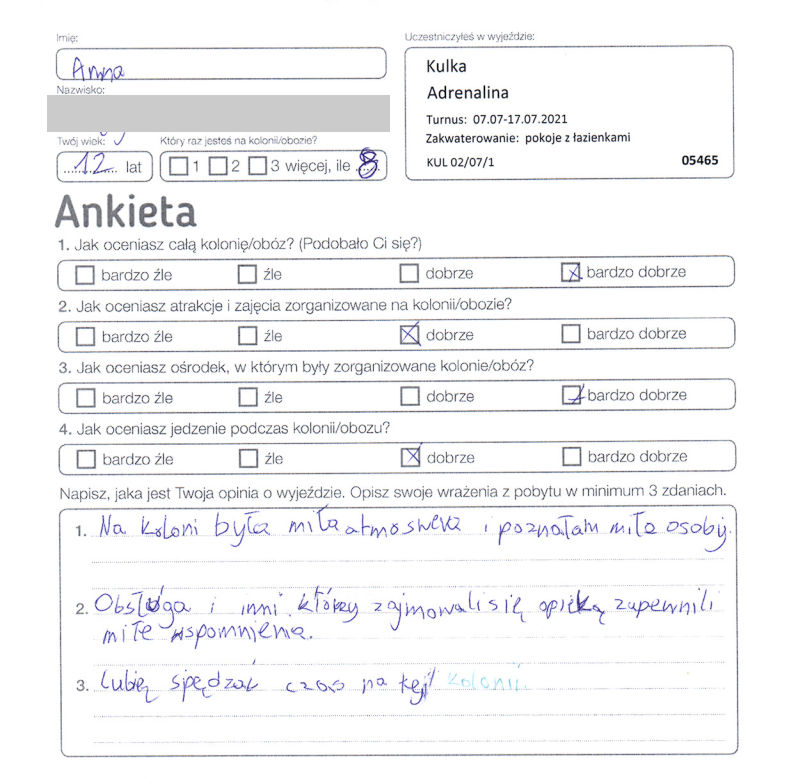 Imię:
Anna
Nazwisko:
Twój wiek:
12 lat
Który raz jesteś na kolonii/obozie?
1 2 3 więcej, ile 8
Uczestniczyłeś w wyjeździe:
Kulka
Adrenalina
Turnus: 07.07-17.07.2021
Zakwaterowanie: pokoje z łazienkami
KUL 02/07/1 05465
Ankieta
1. Jak oceniasz całą kolonię/obóz? (Podobało Ci się?)
bardzo źle źle dobrze bardzo dobrze
2. Jak oceniasz atrakcje i zajęcia zorganizowane na kolonii/obozie?
bardzo źle źle dobrze bardzo dobrze
3. Jak oceniasz ośrodek, w którym były zorganizowane kolonie/obóz?
bardzo źle źle dobrze bardzo dobrze
4. Jak oceniasz jedzenie podczas kolonii/obozu?
bardzo źle źle dobrze bardzo dobrze
Napisz, jaka jest Twoja opinia o wyjeździe. Opisz swoje wrażenia z pobytu w minimum 3 zdaniach.
1. Na koloni była miła atmoswera i poznałam miłe osoby.
2. Obsługa i inni którzy zajmowali się opieką zapewnili
miłe wspomnienia.
3. Lubię spędzać czas na tej kolonii.